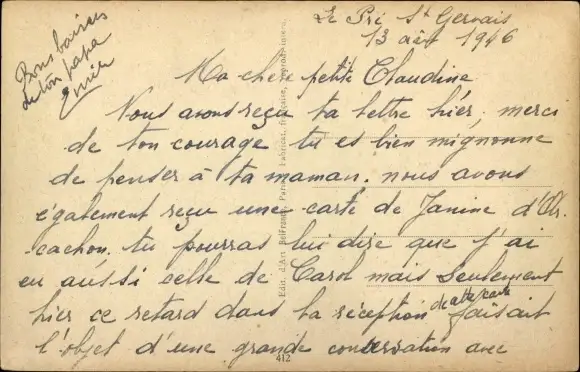 Bons baisers
de ton papa
Emile
Le Pré St Gervais
13 août 1946
Ma chère petite Claudine
Nous avons reçu ta lettre hier, merci
de ton courage tu es bien mignonne
de penser à ta maman. nous avons
également reçu une carte de Janine d'Ar-
cachon. tu pourras lui dire que j'ai
eu aussi celle de Carol mais seulement
hier ce retard dans la réception de cette carte faisait
l'objet d'une grande conversation avec
Edit. d'Art
Paris
Fabricat. française, reproduction
412